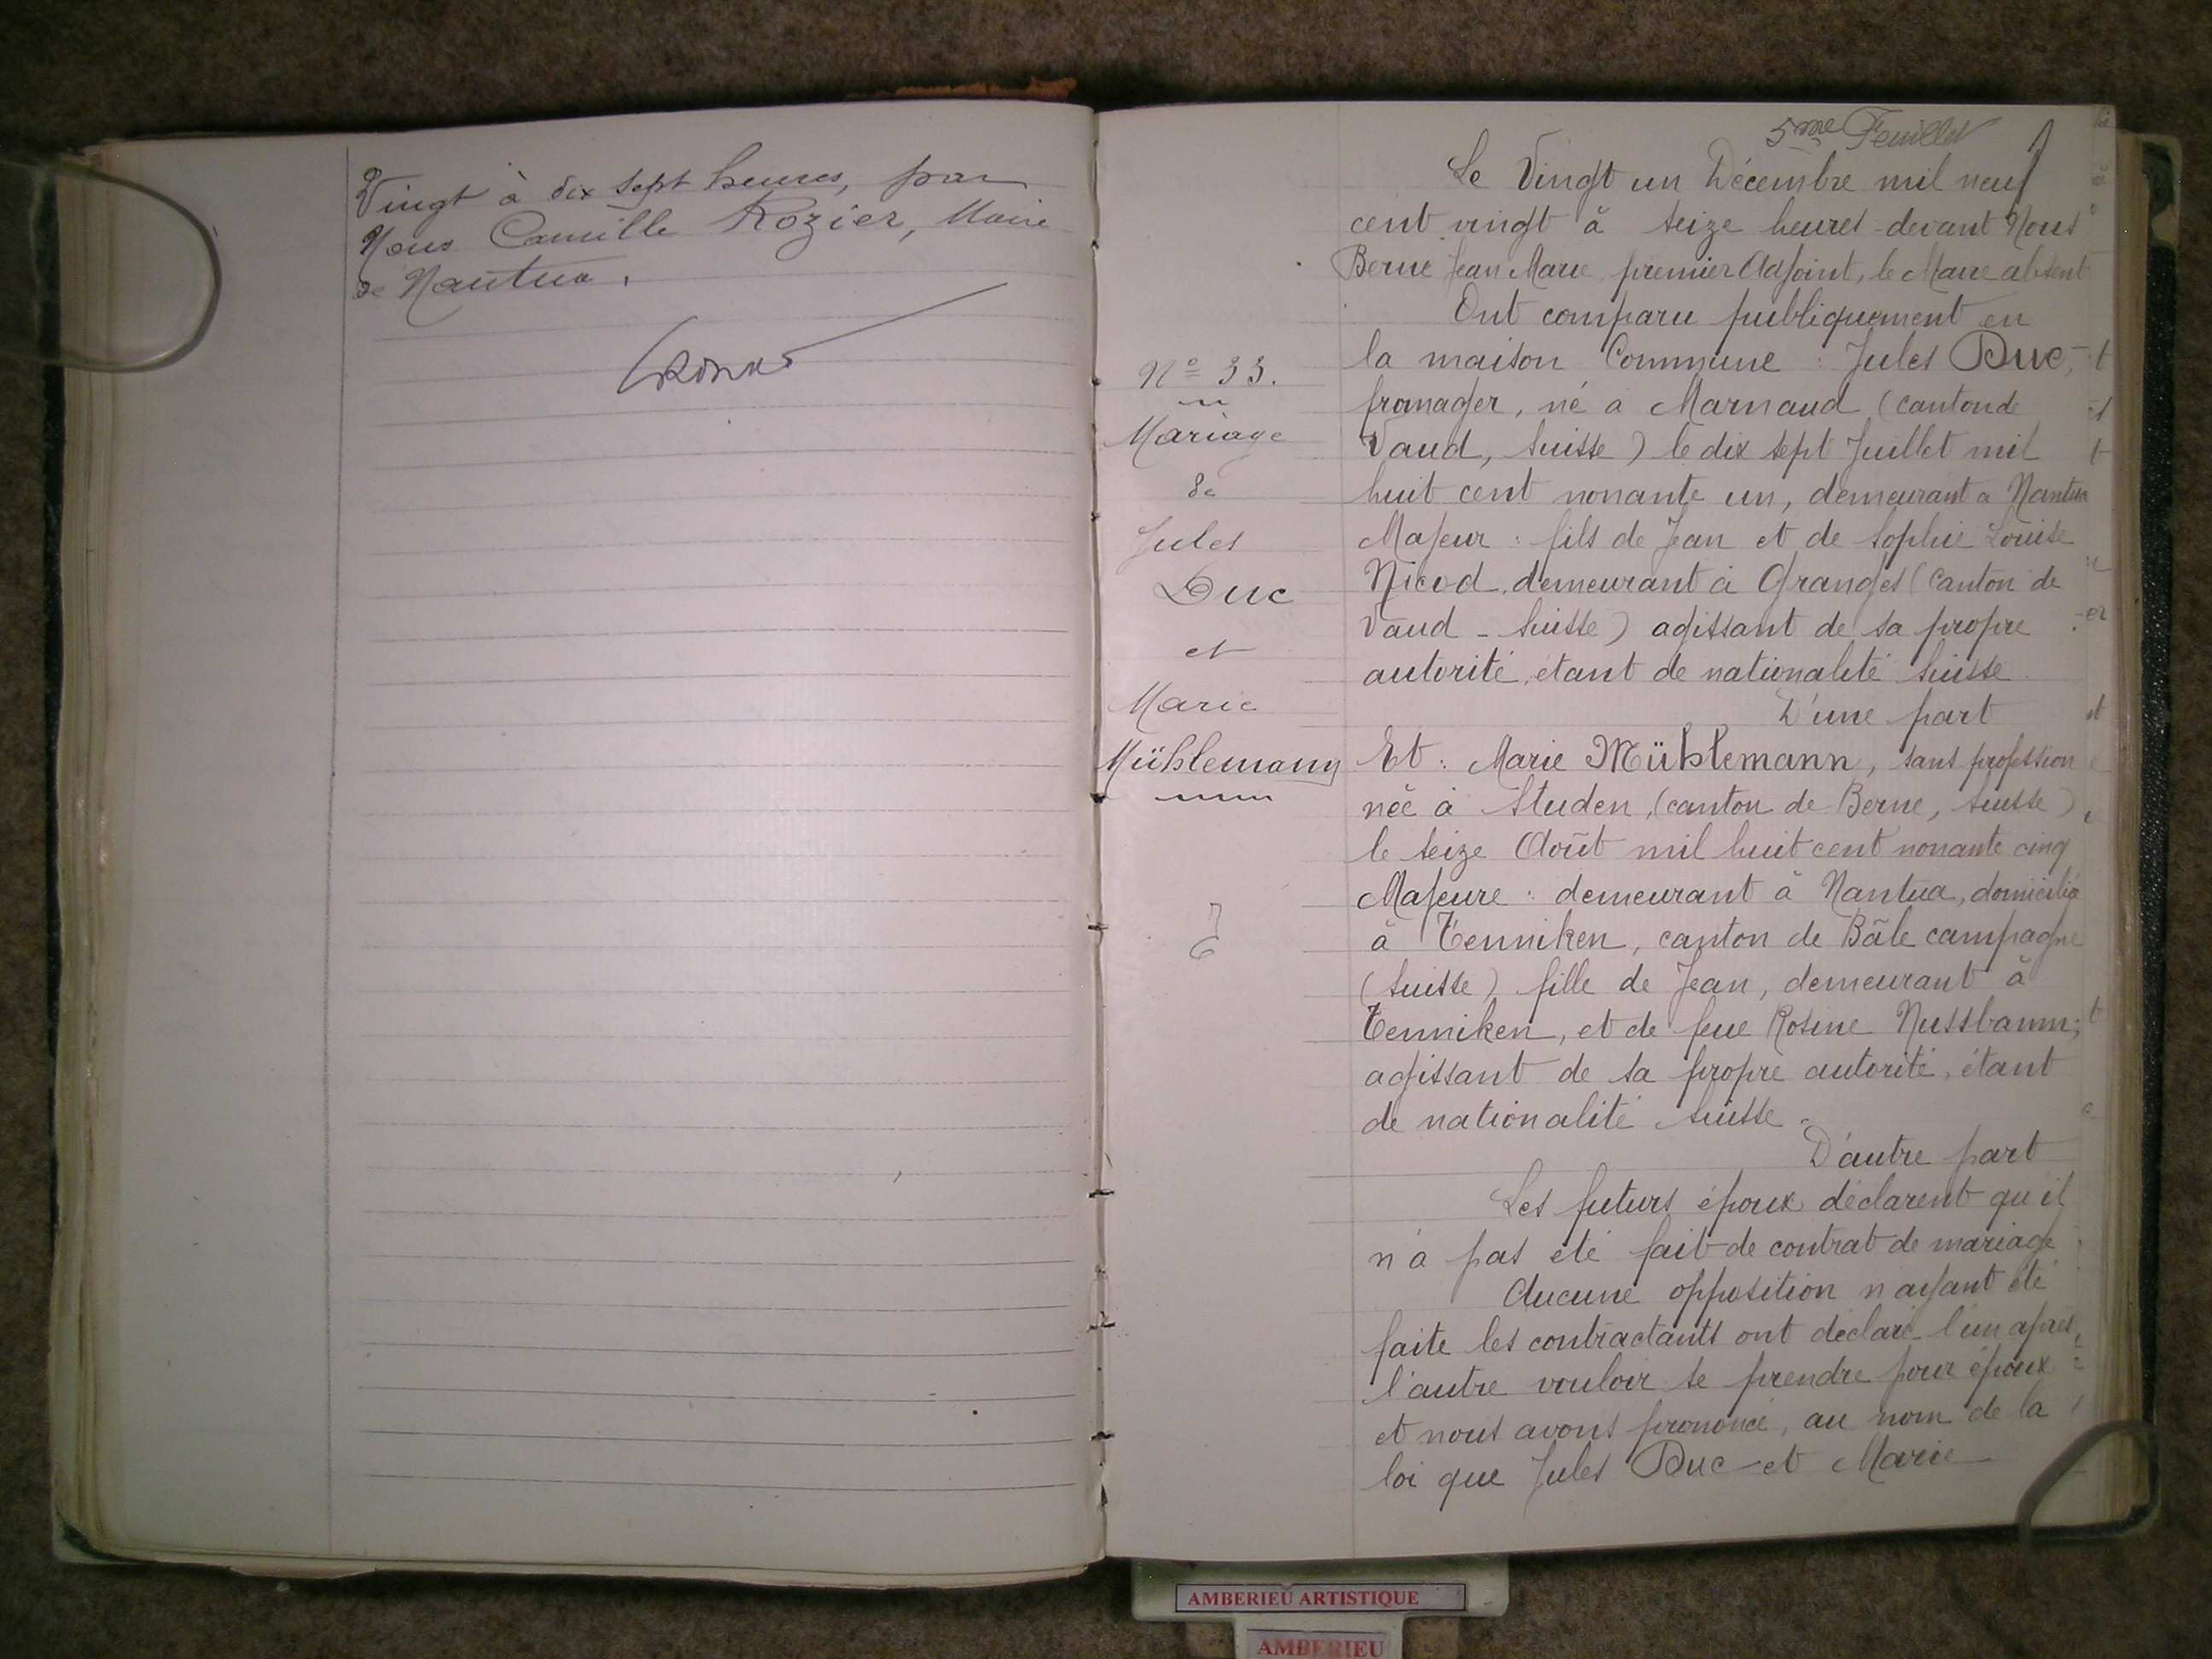 Vingt à dix sept heures, par
Nous Camille Rozier, Maire
de Nantua.
5me Feuillet
N° 33.
Mariage
de
Jules
Duc
et
Marie
Mühlemann
Le Vingt un Décembre mil neuf
cent vingt à seize heures devant Nous
Berne Jean Marie premier Adjoint, le Maire absent
Ont comparu publiquement en
la maison Commune : Jules Duc,
fromager, né à Marnaud (canton de
Vaud, Suisse) le dix sept Juillet mil
huit cent nonante un, demeurant à Nantua
Majeur : fils de Jean et de Sophie Louise
Nicod, demeurant à Granges (Canton de
Vaud - Suisse) agissant de sa propre
autorité, étant de nationalité Suisse
D'une part
Et : Marie Mühlemann, sans profession
née à Studen, (canton de Berne, Suisse)
le seize Août mil huit cent nonante cinq
Majeure : demeurant à Nantua, domiciliée
à Tenniken, canton de Bâle campagne
(Suisse) fille de Jean, demeurant à
Tenniken, et de feue Rosine Nussbaum;
agissant de sa propre autorité, étant
de nationalité Suisse.
D'autre part
Les futurs époux déclarent qu'il
n'a pas été fait de contrat de mariage
Aucune opposition n'ayant été
faite les contractants ont déclaré l'un après
l'autre vouloir se prendre pour époux
et nous avons prononcé, au nom de la
loi que Jules Duc et Marie
AMBERIEU ARTISTIQUE
AMBERIEU